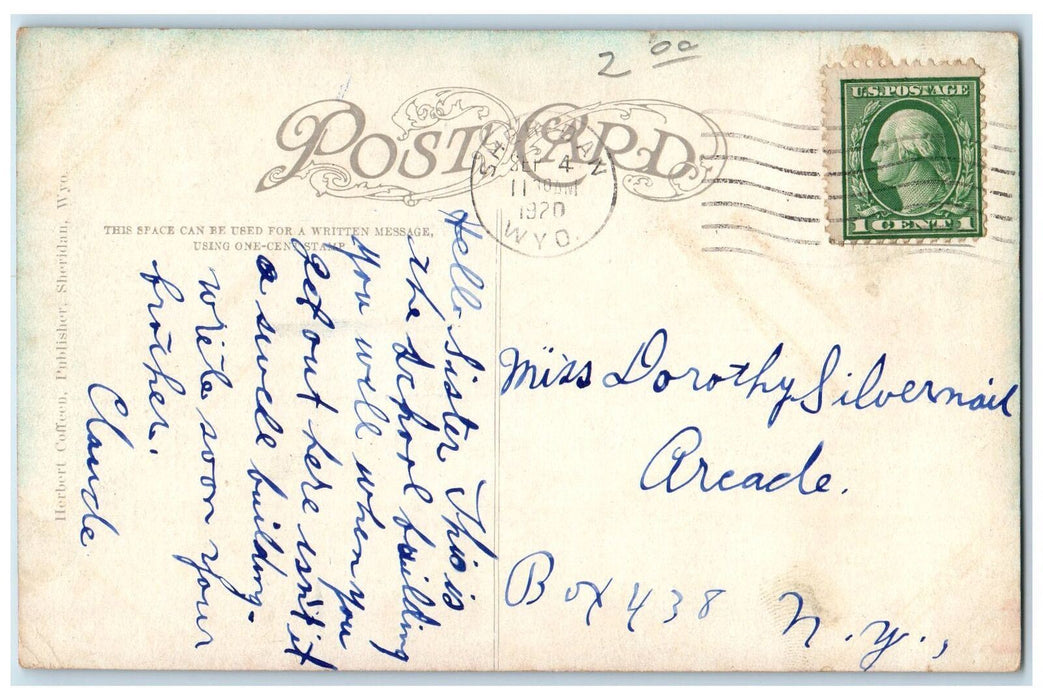 2 00
POST CARD
U.S. POSTAGE
1 CENT 1
SHERIDAN
SEP 4
11 30AM
1920
WYO.
THIS SPACE CAN BE USED FOR A WRITTEN MESSAGE,
USING ONE-CENT STAMP
Herbert Coffeen, Publisher, Sheridan, Wyo.
Hello Sister This is
the School building
you will when you
get out here isn't it
a swell building.
write soon your
brother.
Claude
Miss Dorothy Silvernail
Arcade.
Box 438
N.Y.,